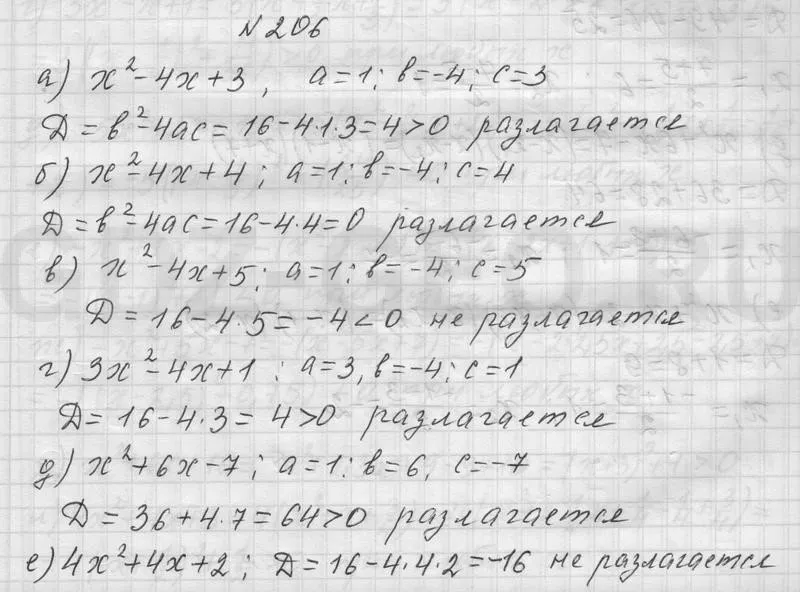 №206
а) x²-4x+3, a=1; b=-4; c=3
Д=b²-4ac=16-4·1·3=4>0 разлагается
б) x²-4x+4; a=1; b=-4; c=4
Д=b²-4ac=16-4·4=0 разлагается
в) x²-4x+5; a=1; b=-4; c=5
Д=16-4·5=-4<0 не разлагается
г) 3x²-4x+1; a=3, b=-4; c=1
Д=16-4·3=4>0 разлагается
д) x²+6x-7; a=1; b=6, c=-7
Д=36+4·7=64>0 разлагается
е) 4x²+4x+2; Д=16-4·4·2=-16 не разлагается